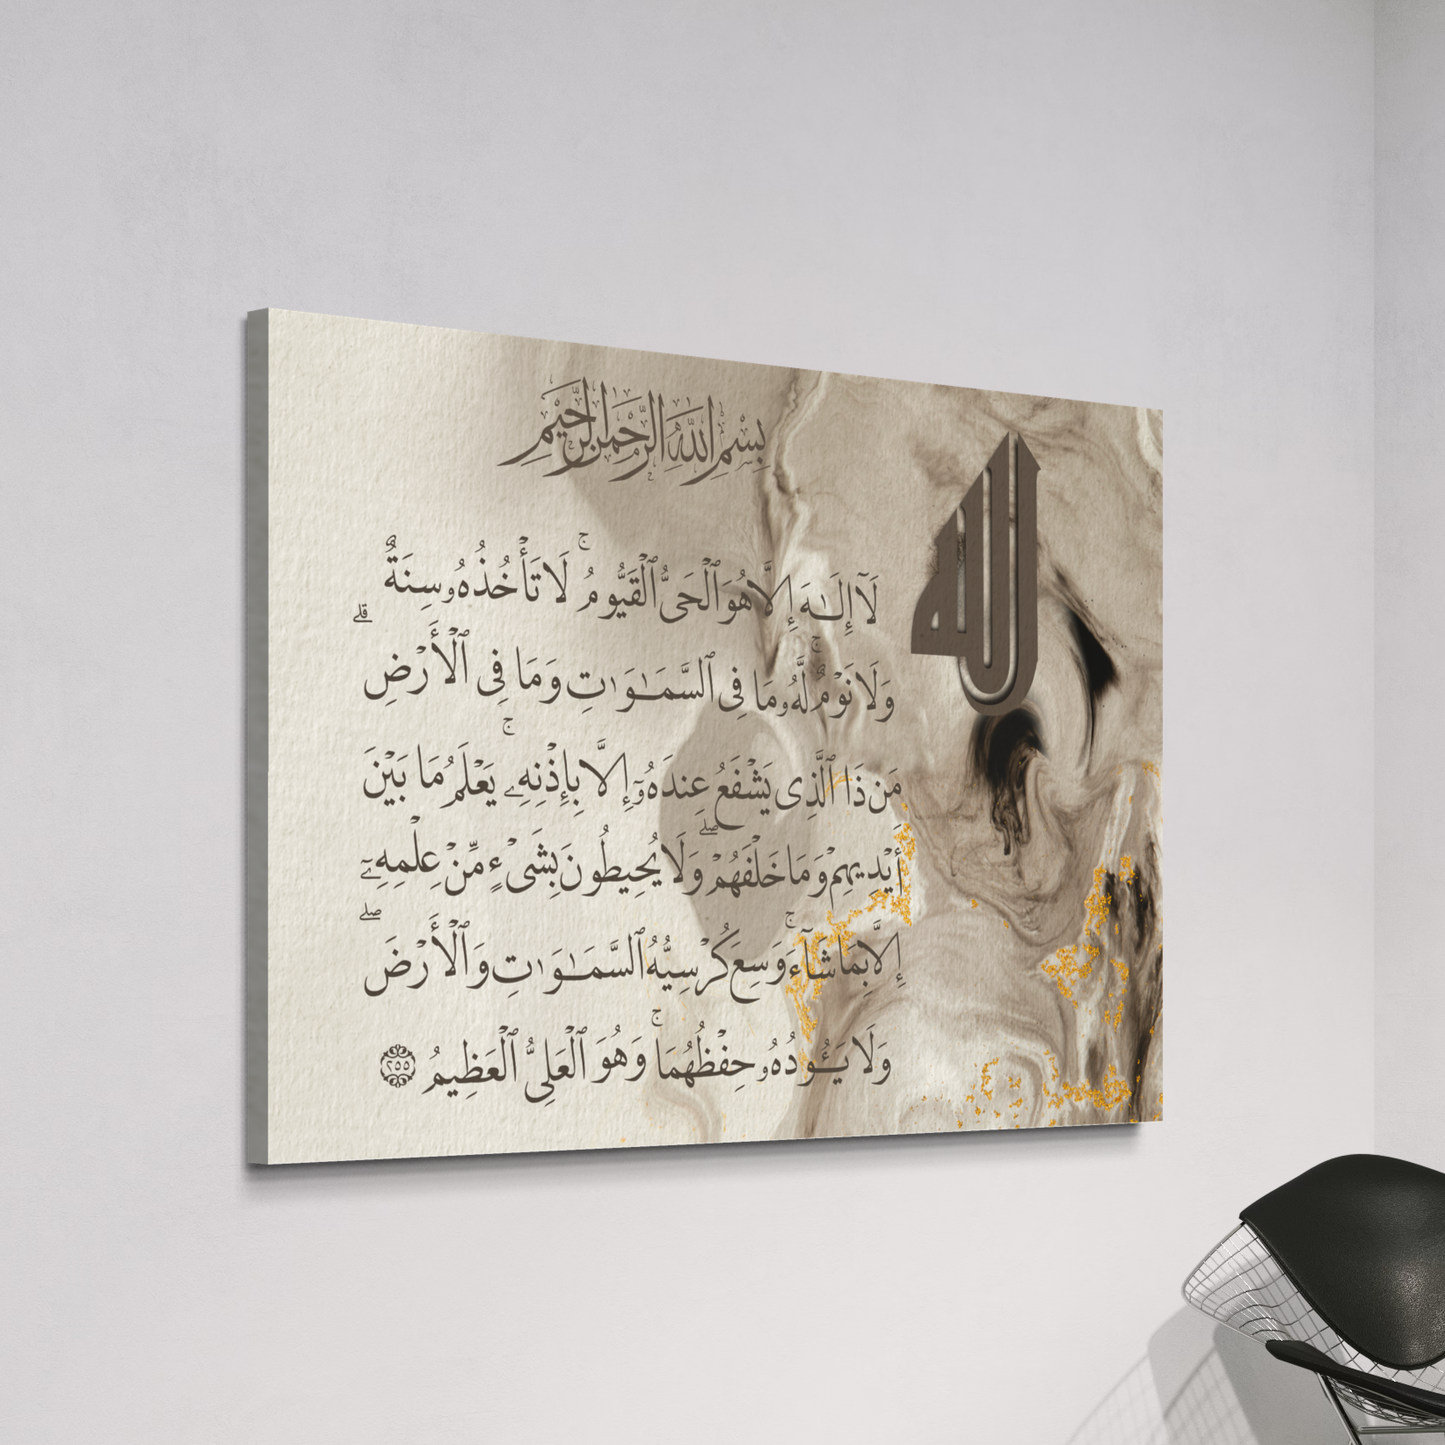 بِسْمِ اللَّهِ الرَّحْمَنِ الرَّحِيمِ
الله
لَآ إِلَـٰهَ إِلَّا هُوَ ٱلْحَىُّ ٱلْقَيُّومُ ۚ لَا تَأْخُذُهُۥ سِنَةٌ
وَلَا نَوْمٌ ۚ لَّهُۥ مَا فِى ٱلسَّمَـٰوَٰتِ وَمَا فِى ٱلْأَرْضِ ۗ
مَن ذَا ٱلَّذِى يَشْفَعُ عِندَهُۥٓ إِلَّا بِإِذْنِهِۦ ۚ يَعْلَمُ مَا بَيْنَ
أَيْدِيهِمْ وَمَا خَلْفَهُمْ ۖ وَلَا يُحِيطُونَ بِشَىْءٍ مِّنْ عِلْمِهِۦٓ
إِلَّا بِمَا شَآءَ ۚ وَسِعَ كُرْسِيُّهُ ٱلسَّمَـٰوَٰتِ وَٱلْأَرْضَ ۖ
وَلَا يَـُٔودُهُۥ حِفْظُهُمَا ۚ وَهُوَ ٱلْعَلِىُّ ٱلْعَظِيمُ ٢٥٥